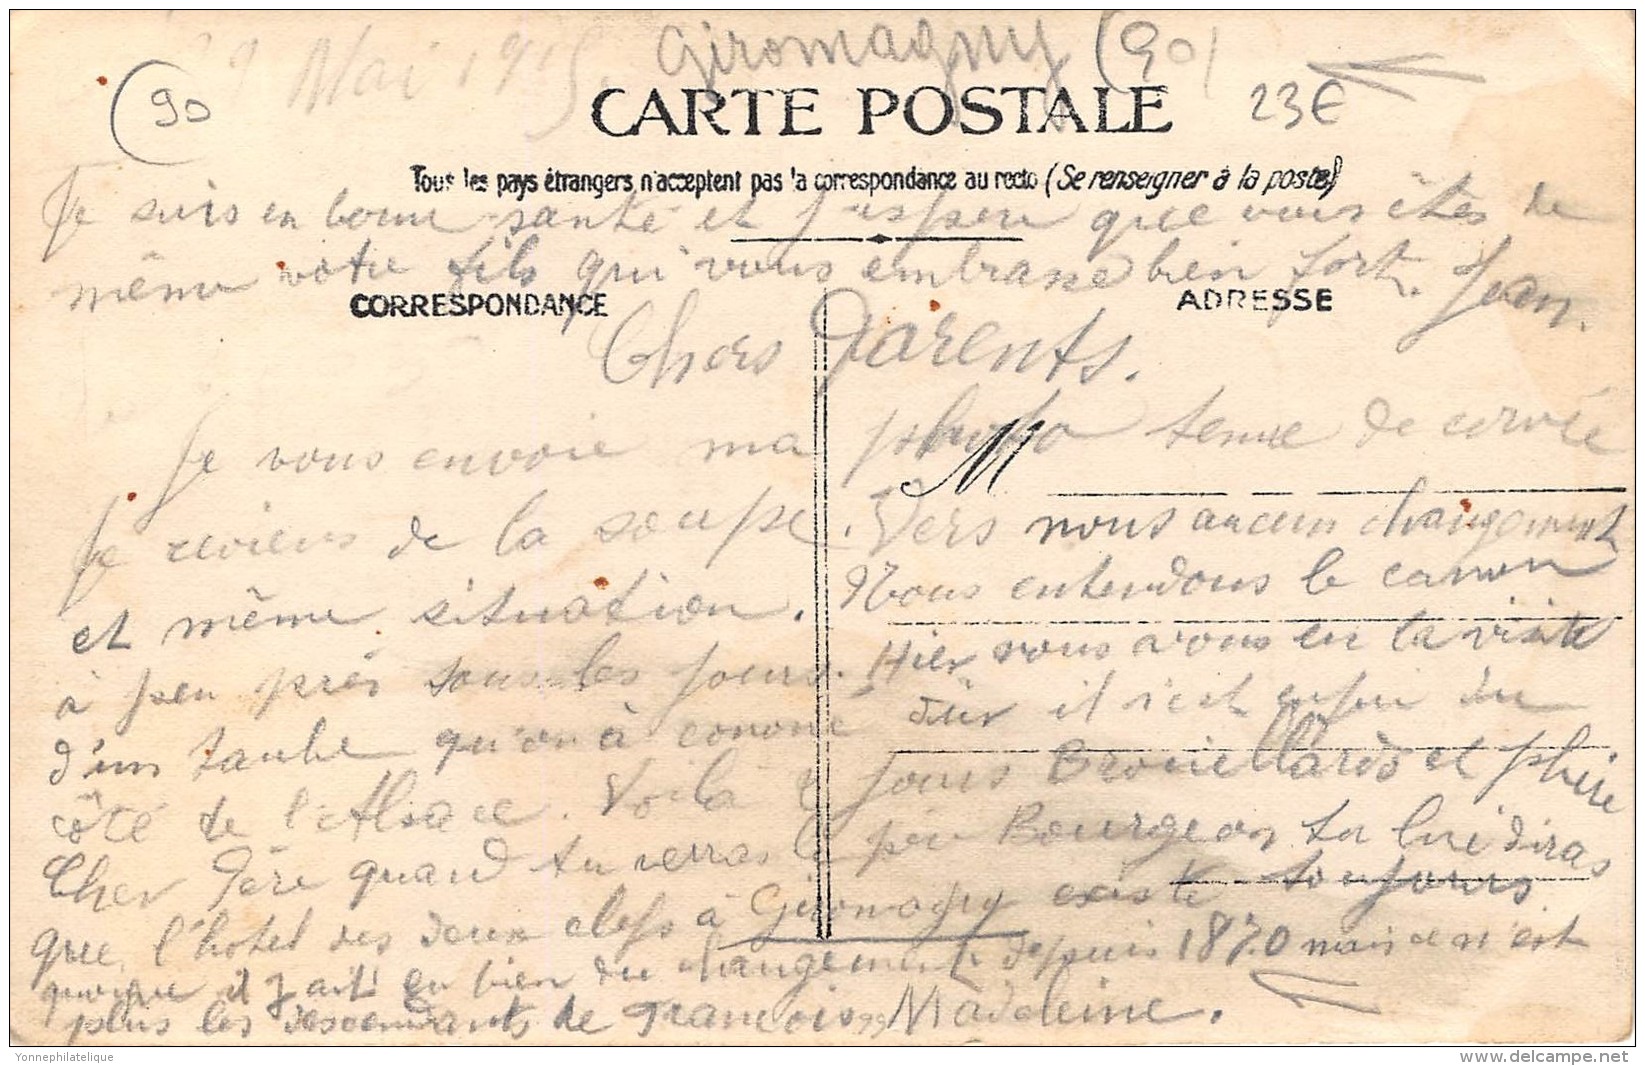 29 Mai 1915. Giromagny (90)
(90
CARTE POSTALE
23€
Tous les pays étrangers n'acceptent pas la correspondance au recto (Se renseigner à la poste)
Je suis en bonne santé et j'espère que vous êtes de
même votre fils qui vous embrasse bien fort. Jean.
CORRESPONDANCE
ADRESSE
Chers Parents.
Je vous envoie ma photo tenue de corvée
M
Je reviens de la soupe. Vers nous aucun changement
et même situation. Nous entendons le canon
à peu près tous les jours. Hier nous avons eu la visite
d'un taube qu'on à canoné il s'est enfui du
côté de l'Alsace. Voilà jours Brouillards et pluie
Cher Père quand tu verras le père Bourgeon tu lui diras
que l'hôtel des deux clefs à Giromagny existe toujours
quoique il y ait eu bien du changement depuis 1870 mais ce n'est
plus les descendants de Francois Madeleine.
Yonnephilatelique
delcampe.net